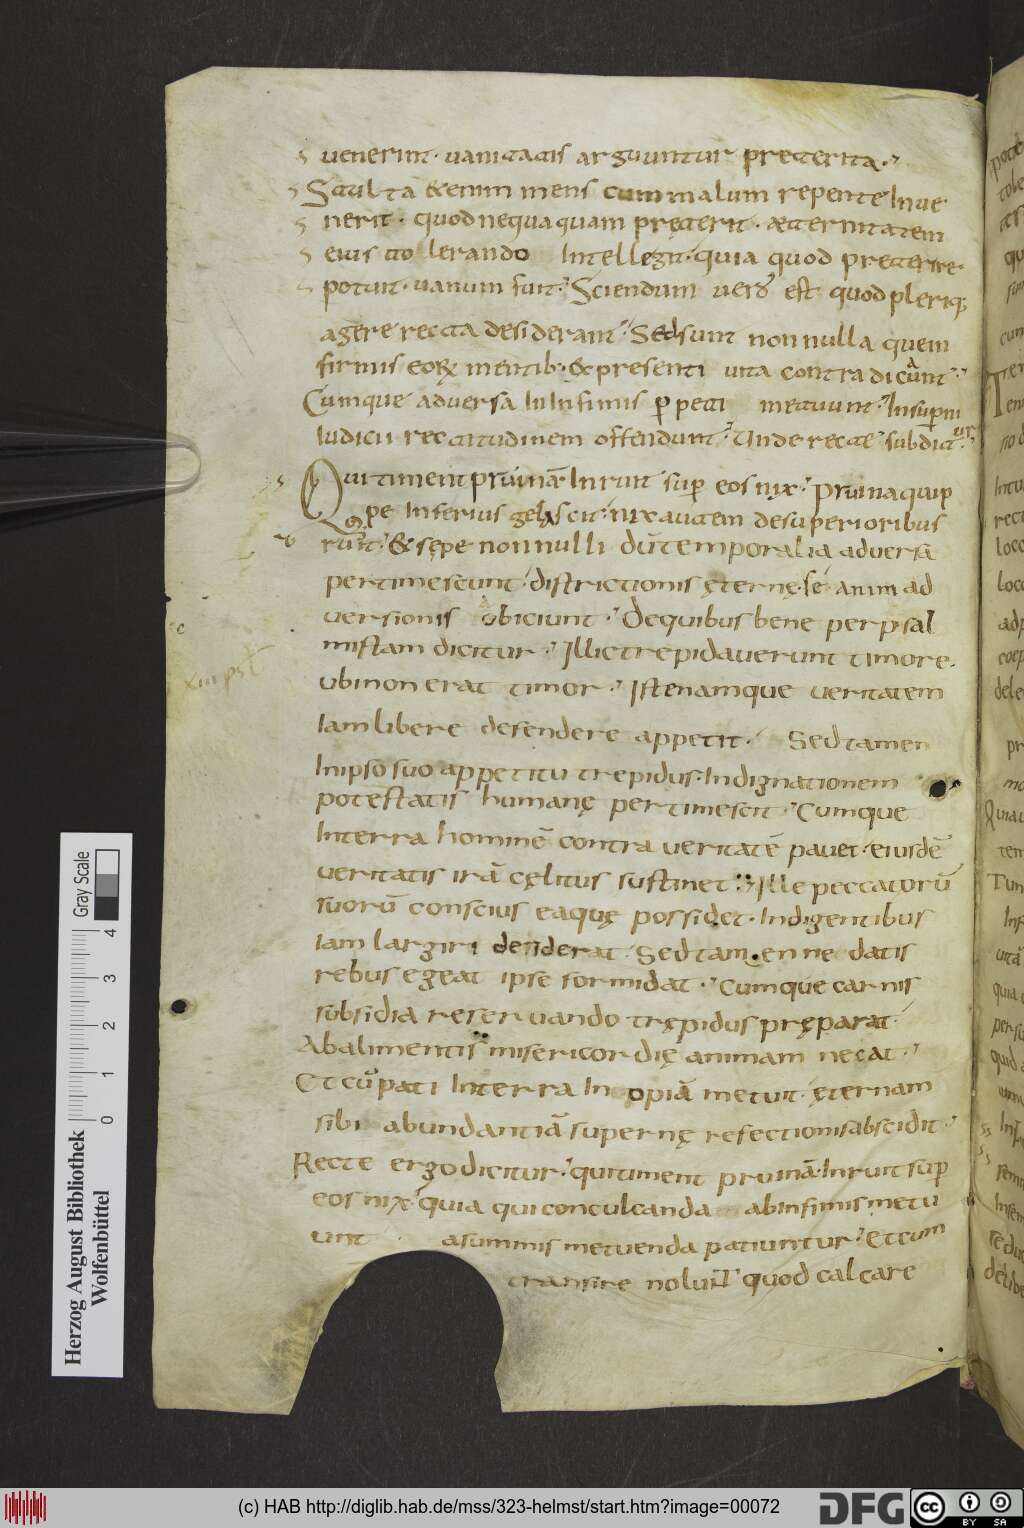 uenerint · uanitatis arguuntur preterita ·
Stulta &enim mens cum malum repente Inue
nerit · quod nequaquam pręterit · æternitatem
eius tollerando Intellegit · quia quod preterire
potuit · uanum fuit · Sciendum uero est quod pleriq;
agere recta desiderant · Sed sunt non nulla quem
firmis mentib; & presenti uita contradicant
Cumque aduersa In Infimis perpeti metuunt · In
Iudicii rectitudinem offendunt · Unde recte subdit
Qui timent pruinā Inruit sup eos nix · Pruina quip
pe Inferius gelascit · nix autem desuperioribus
ruit · & sępe non nulli dū temporalia aduersa
pertimescunt · districtionis ęternę · se animad
uersionis obiciunt · De quibus bene per psal
mistam dicitur · Illic trepidauerunt timore ·
ubi non erat timor · Iste namque ueritatem
Iam libere defendere appetit · Sed tamen
In ipso suo appetitu trepidus · Indignationem
potestatis humanę pertimescit · Cumque
Interra hominē contra ueritatē pauet · eiusdē
ueritatis irā cęlitus sustinet · Ille peccatorū
suorū conscius eaquę possidet · Indigentibus
Iam largiri desiderat · Sed tamen ne datis
rebus egeat ipse formidat · Cumque carnis
subsidia reseruando trępidus pręparat
Ab alimentis misericordię animam necat ·
Et cū pati Interra Inopiā metuit · ęternam
sibi abundantiā supernę refectionis abscidit ·
Recte ergo dicitur · qui timent pruinā · Inruit sup
eos nix · quia qui conculcanda ab Infimis metu
unt · a summis metuenda patiuntur · Et cum
transire noluit quod calcare
Herzog August Bibliothek
Wolfenbüttel
0 1 2 3 4
Gray Scale
(c) HAB http://diglib.hab.de/mss/323-helmst/start.htm?image=00072
DFG
cc BY SA